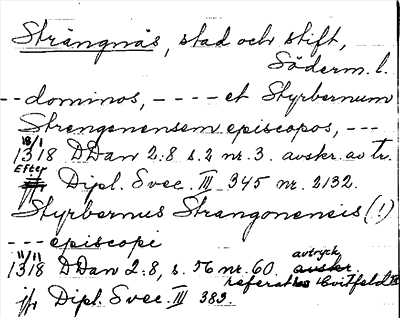 Strängnäs, stad och stift,
Söderm. l.
-- dominos, ---- et Styrbernum
Strengenensem episcopos, ---
18/1
1318 DDan 2:8 s. 2 nr. 3. avskr. av tr.
Efter
Dipl. Svec. III 345 nr. 2132.
Styrbernus Strangonensis (!)
--- episcopi
11/11
1318 DDan 2:8, s. 56 nr. 60. avtryck
referat hos Hvitfeldt
jfr Dipl. Svec. III 382.